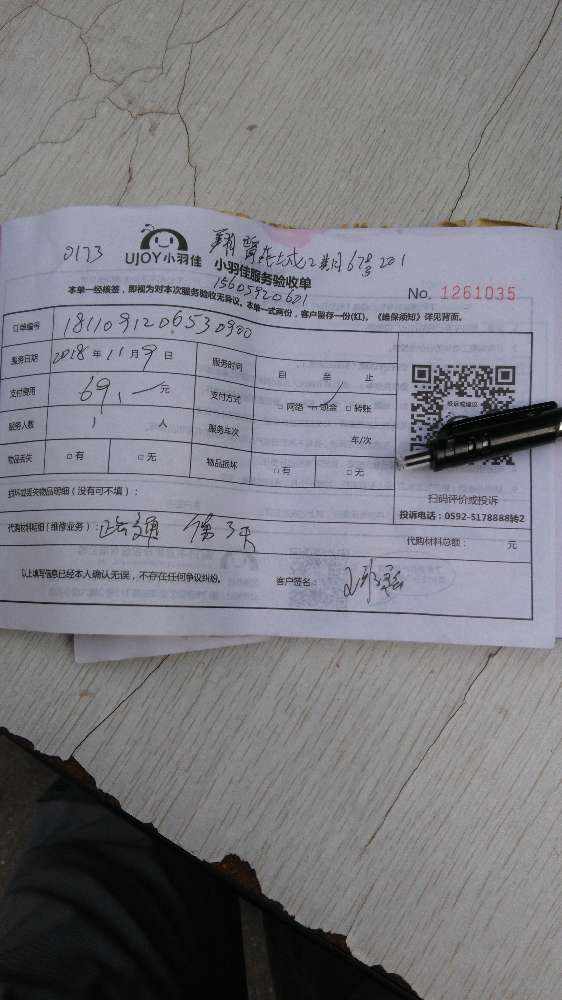 0173
UJOY小羽佳 小羽佳服务验收单
2期67 201
15605920601
本单一经核签，即视为对本次服务验收无异议。本单一式两份，客户留存一份(红)，《维保须知》详见背面。
No. 1261035
订单编号 1811091206530900
服务日期 2018 年 11 月 9 日 服务时间 自 至 止
支付费用 69.— 元 支付方式 □网络 □现金 □转账
服务人数 1 人 服务车次 车/次
物品丢失 □有 □无 物品损坏 □有 □无
投诉或建议
扫码评价或投诉
投诉电话：0592-5178888转2
损坏或丢失物品明细（没有可不填）：
代购材料明细（维修业务）： 代购材料总额： 元
以上填写信息已经本人确认无误，不存在任何争议纠纷。 客户签名：